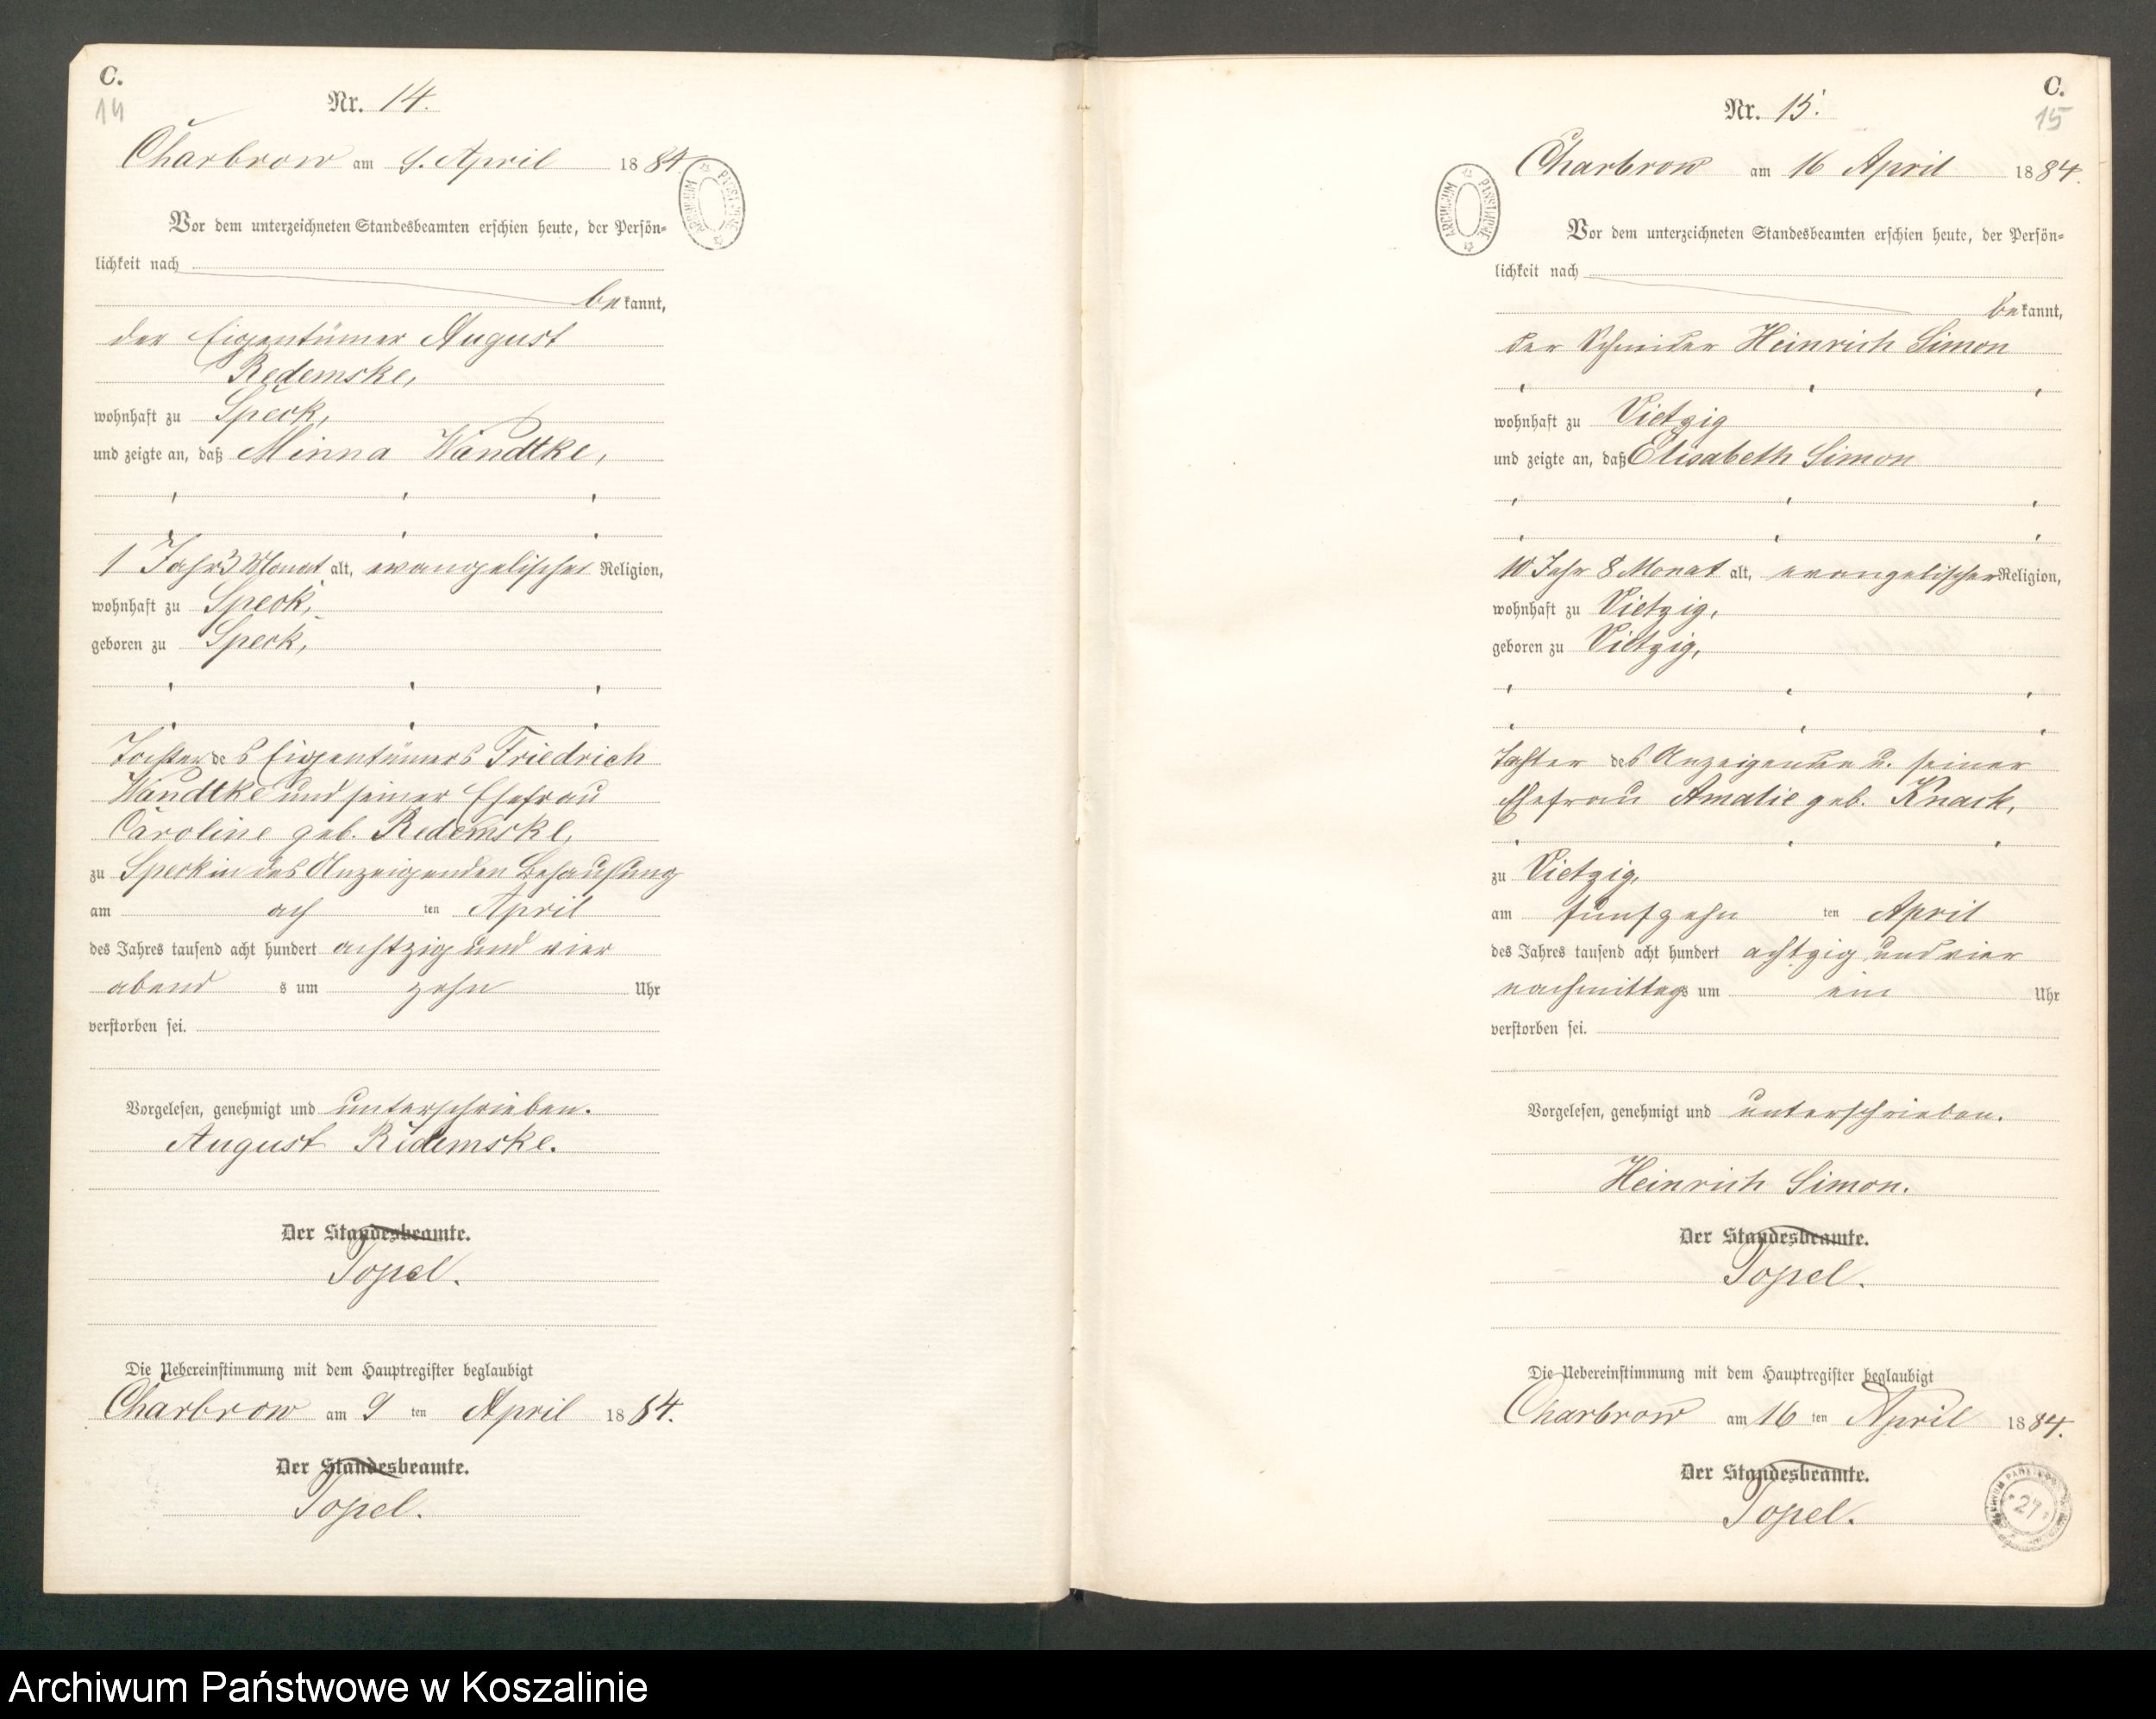 C.
14
Nr. 14.
Charbrow am 9. April 1884.
ARCHIWUM PAŃSTWOWE
Vor dem unterzeichneten Standesbeamten erschien heute, der Persön-
lichkeit nach
bekannt,
der Eigentümer August
Redemske,
wohnhaft zu Speck,
und zeigte an, daß Minna Wandtke,
1 Jahr 3 Monat alt, evangelischer Religion,
wohnhaft zu Speck,
geboren zu Speck,
Tochter des Eigentümers Friedrich
Wandtke und seiner Ehefrau
Caroline geb. Redemske,
zu Speck in des Anzeigenden Behausung
am ach ten April
des Jahres tausend acht hundert achtzig und vier
abend s um zehn Uhr
verstorben sei.
Vorgelesen, genehmigt und unterschrieben.
August Redemske.
Der Standesbeamte.
Topel.
Die Uebereinstimmung mit dem Hauptregister beglaubigt
Charbrow am 9 ten April 1884.
Der Standesbeamte.
Topel.
C.
15
Nr. 15.
Charbrow am 16 April 1884.
ARCHIWUM PAŃSTWOWE
Vor dem unterzeichneten Standesbeamten erschien heute, der Persön-
lichkeit nach
bekannt,
der Schneider Heinrich Simon
wohnhaft zu Vietzig
und zeigte an, daß Elisabeth Simon
10 Jahr 8 Monat alt, evangelischer Religion,
wohnhaft zu Vietzig,
geboren zu Vietzig,
Tochter des Anzeigenden u. seiner
Ehefrau Amalie geb. Knack,
zu Vietzig,
am fünfzehn ten April
des Jahres tausend acht hundert achtzig und vier
nachmittags um ein Uhr
verstorben sei.
Vorgelesen, genehmigt und unterschrieben.
Heinrich Simon.
Der Standesbeamte.
Topel.
Die Uebereinstimmung mit dem Hauptregister beglaubigt
Charbrow am 16 ten April 1884.
Der Standesbeamte.
Topel.
27
Archiwum Państwowe w Koszalinie